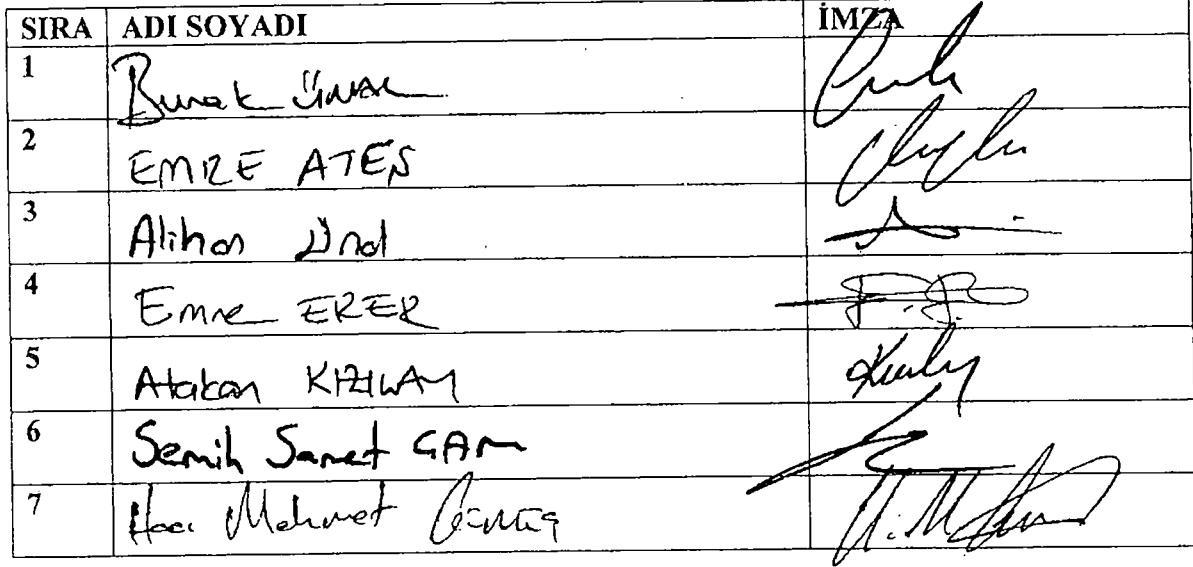 SIRA ADI SOYADI İMZA
1 Burak ÜNAL
2 EMRE ATEŞ
3 Alihan Ünal
4 Emre ERER
5 Atakan KIZILAY
6 Semih Samet ÇAM
7 Hacı Mehmet